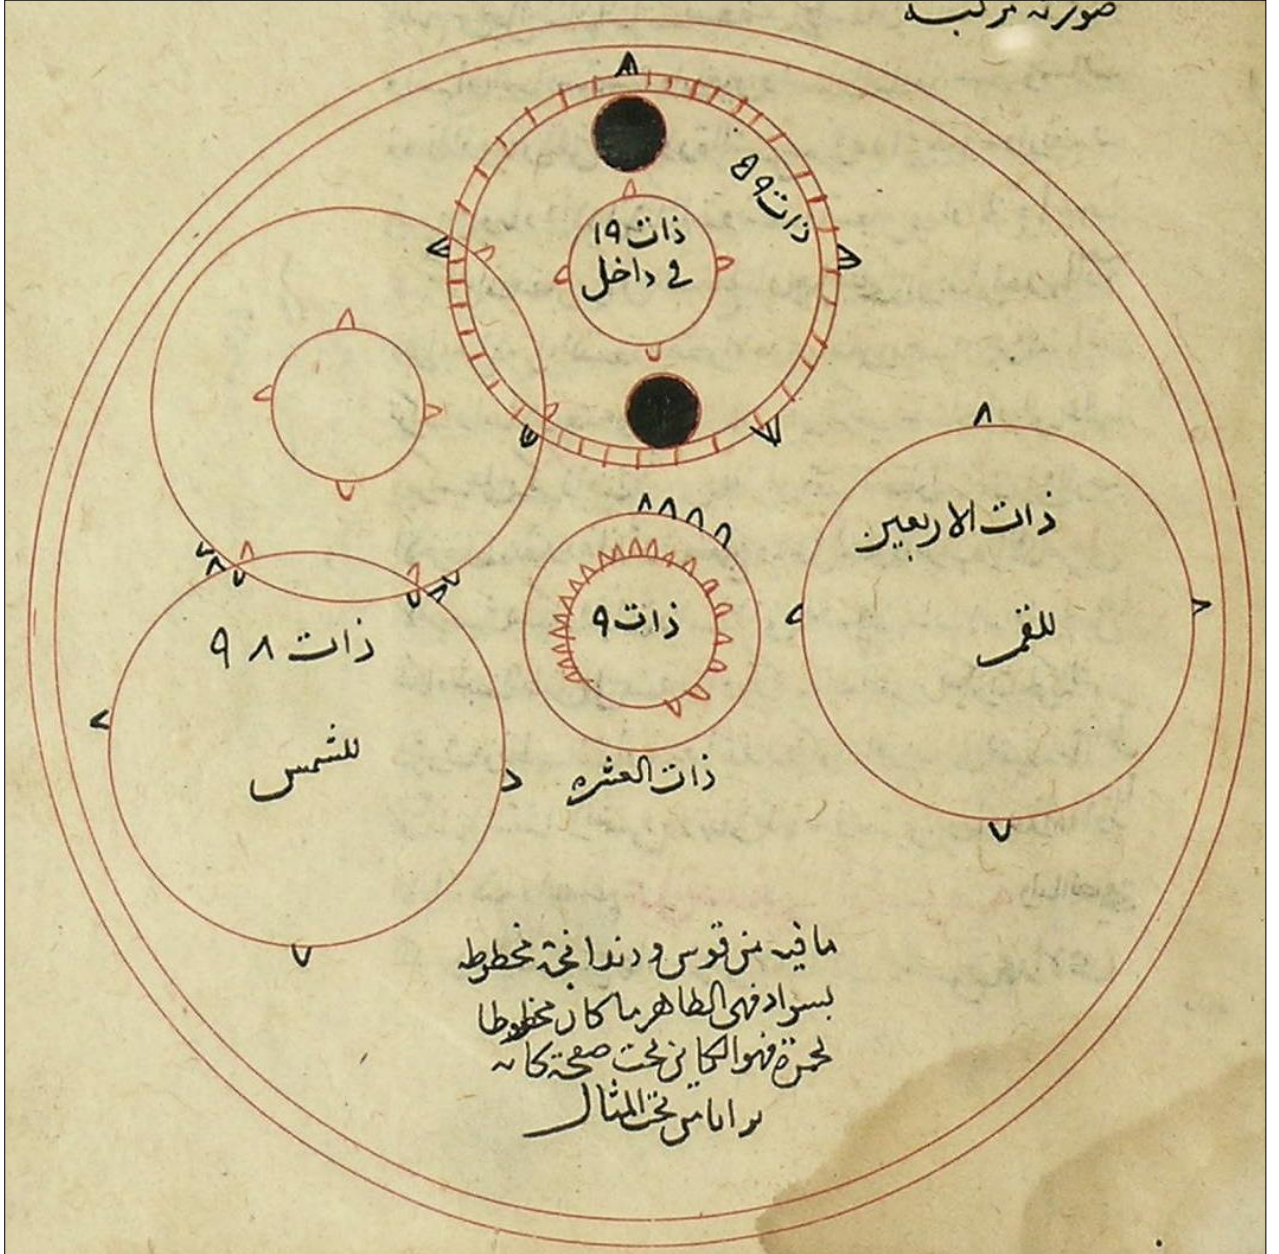 صورته مركبه
ذات ٥٩
ذات ١٩
في داخل
ذات الاربعين
للقمر
ذات ٩
ذات العشره
ذات ٩٨
للشمس
ما فيه من قوس و دندانجة مخطوطه
بسواد فهى الظاهر ما كان مخطوطا
بحمرة فهو الكائن تحت صفحة كانه
تحت المثال